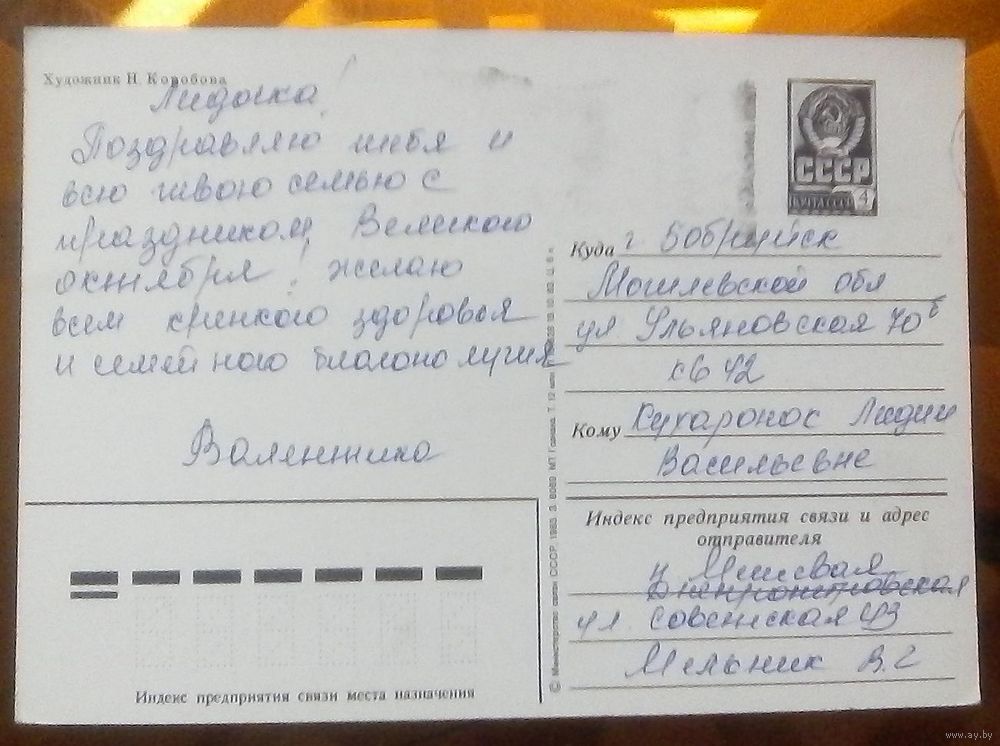 Художник Н. Коробова
Лидочка!
Поздравляю тебя и
всю твою семью с
праздником Великого
октября! желаю
всем крепкого здоровья
и семейного благополучия
Валентина
СССР
ПОЧТА СССР 4
Куда г Бобруйск
Могилевской обл
ул Ульяновская 70б
кв 42
Кому Кухаронок Лидии
Васильевне
Индекс предприятия связи и адрес
отправителя
ул. Советская 43
Мельник В. С
Индекс предприятия связи места назначения
© Министерство связи СССР. 1983. З. 8069. МТ Гознака.
www.ay.by